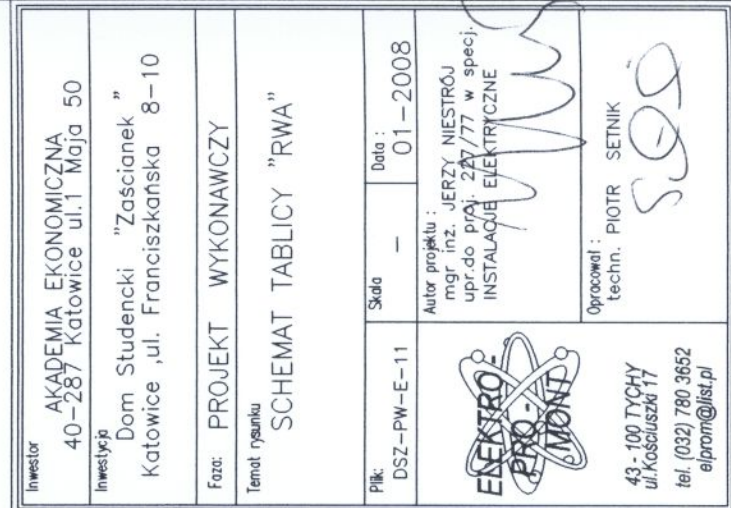 Inwestor
AKADEMIA EKONOMICZNA
40-287 Katowice ul.1 Maja 50
Inwestycja
Dom Studencki "Zaścianek "
Katowice ,ul. Franciszkańska 8-10
Faza: PROJEKT WYKONAWCZY
Temat rysunku
SCHEMAT TABLICY "RWA"
Plik:
DSZ-PW-E-11
Skala
—
Data :
01-2008
ELEKTRO-
PRO -
MONT
43 - 100 TYCHY
ul.Kościuszki 17
tel. (032) 780 3652
elprom@list.pl
Autor projektu :
mgr inż. JERZY NIESTRÓJ
upr.do proj. 227/77 w specj.
INSTALACJE ELEKTRYCZNE
Opracował :
techn. PIOTR SETNIK